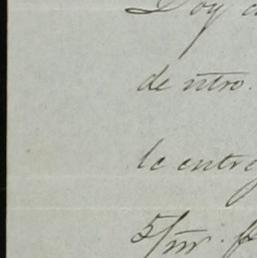 Doy
de ntro.
le entreg
5/m. f